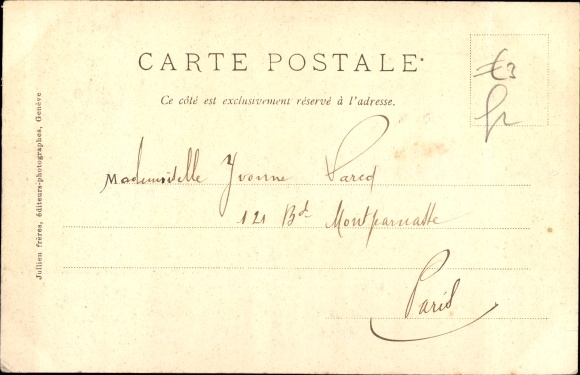 CARTE POSTALE
Ce côté est exclusivement réservé à l'adresse.
€3
Mademoiselle Yvonne
121 Bd Montparnasse
Paris
Jullien frères, éditeurs-photographes, Genève